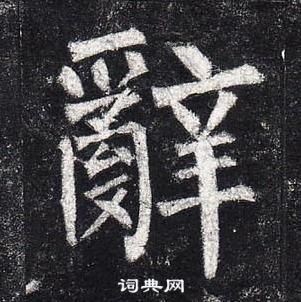 辭
词典网